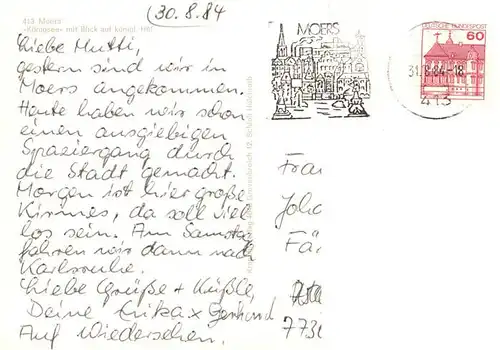 (30.8.84
413 Moers
Königssee mit Blick auf
Liebe Mutti,
gestern sind wir in
Moers angekommen.
Heute haben wir schon
einen ausgiebigen
Spaziergang durch
die Stadt gemacht.
Morgen ist hier große
Kirmes, da soll viel
los sein. Am Samstag
fahren wir dann nach
Karlsruhe.
Liebe Grüße + Küßle,
Deine Erika x Gerhard
Auf Wiedersehen.
MOERS
DEUTSCHE BUNDESPOST
60
31.8.84-18
413
Frau
Joha
Fär
7730